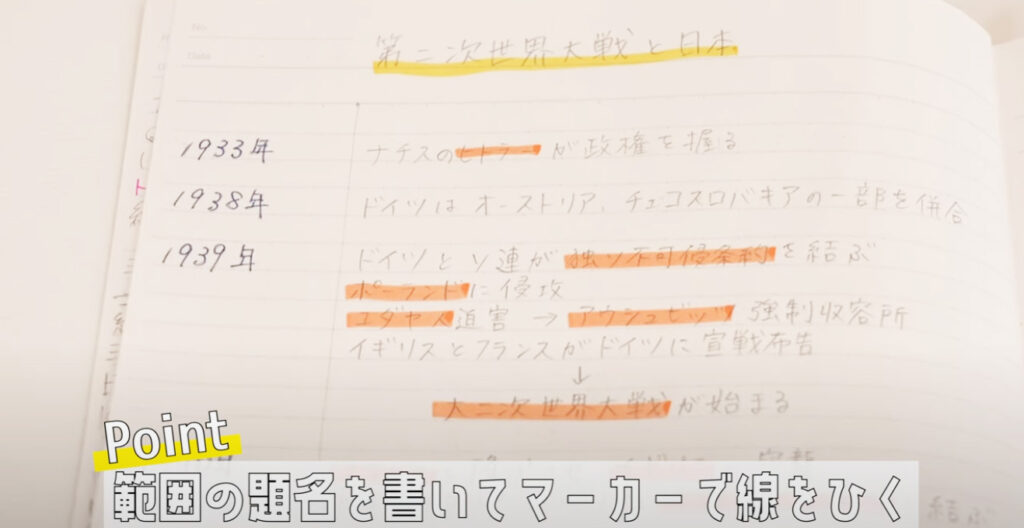 No.
Date
第二次世界大戦と日本
1933年 ナチスのヒトラーが政権を握る
1938年 ドイツはオーストリア、チェコスロバキアの一部を併合
1939年 ドイツとソ連が独ソ不可侵条約を結ぶ
ポーランドに侵攻
ユダヤ人迫害 → アウシュビッツ 強制収容所
イギリスとフランスがドイツに宣戦布告
↓
大二次世界大戦が始まる
結ぶ
Point
範囲の題名を書いてマーカーで線をひく